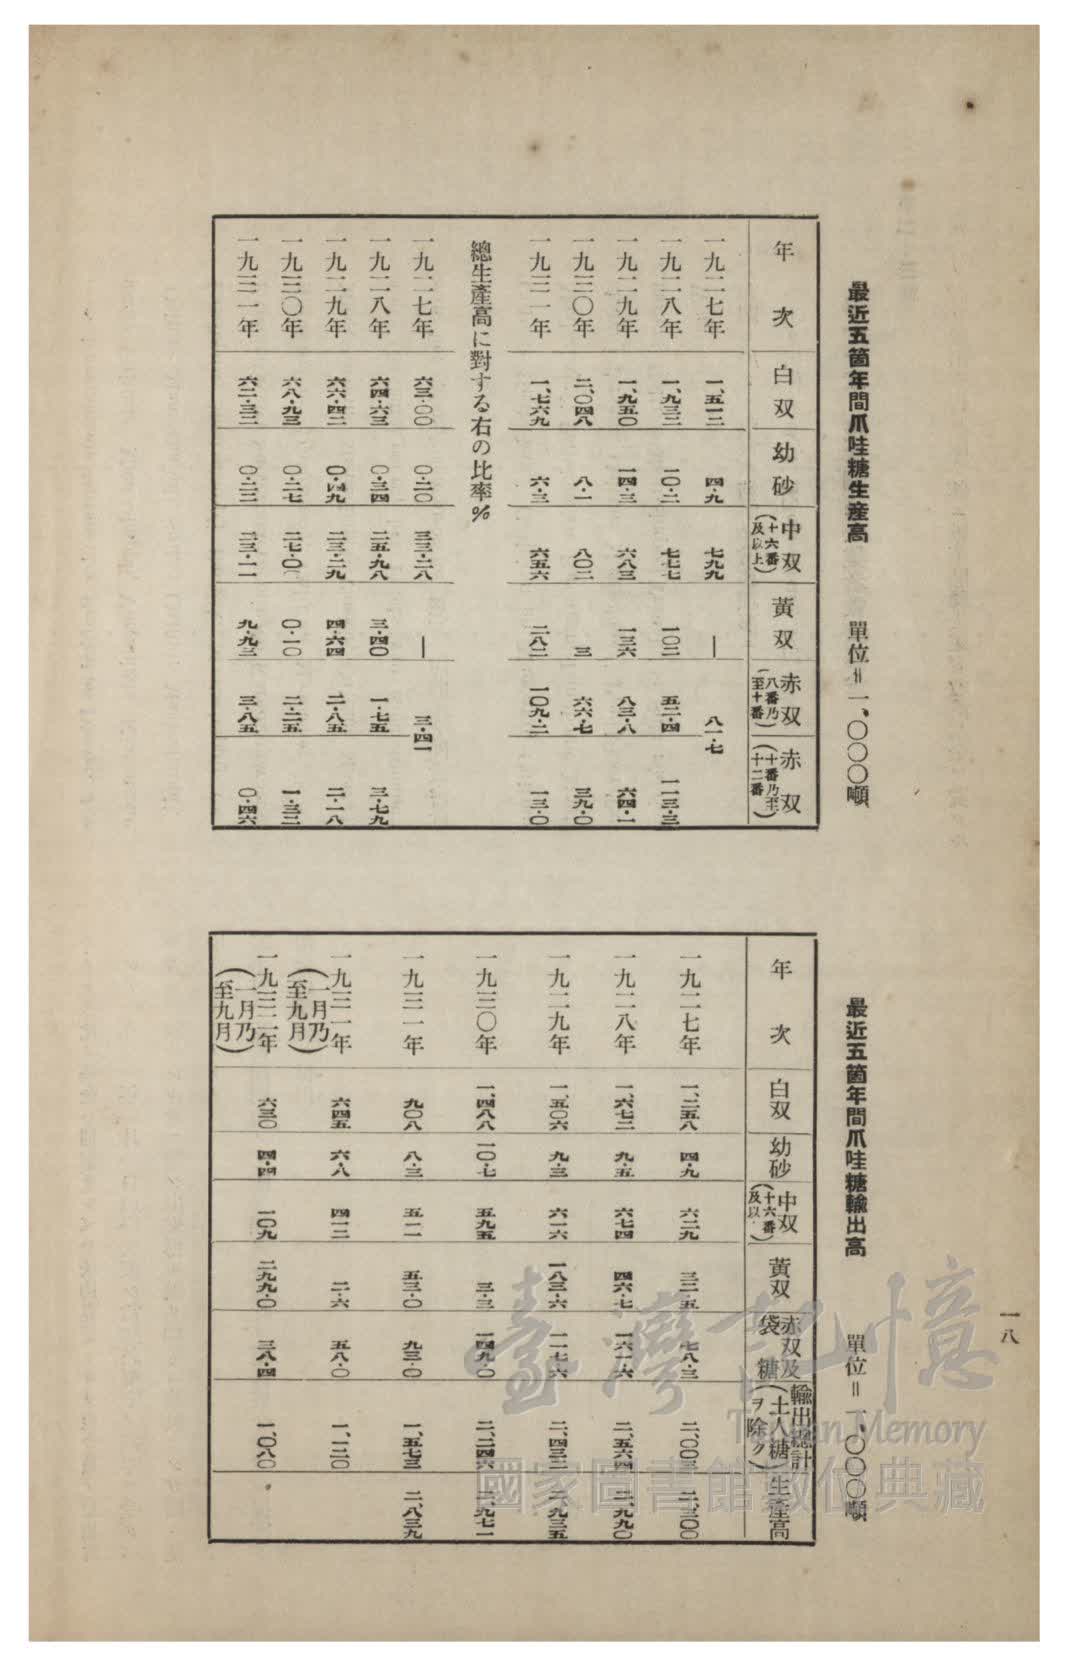 最近五箇年間爪哇糖生産高　單位=一、〇〇〇噸
年次　白双　幼砂　中双（十六番及以上）　黃双　赤双（八番乃至十番）　赤双（十番乃至十二番）
一九二七年　一、五一二　四・九　七九九　—　八一・七
一九二八年　一、九三三　一〇・二　七七七　一〇二　五二・四　一一三・三
一九二九年　一、九五〇　一四・三　六八三　一三六　八三・八　六四・一
一九三〇年　二、〇四八　八・一　八〇二　三　六六・七　三九・〇
一九三一年　一、七六九　六・三　六五六　二八二　一〇九・二　一三・〇
總生產高に對する右の比率%
一九二七年　六三・〇〇　〇・二〇　三三・二八　—　三・四一
一九二八年　六四・六三　〇・三四　二五・九八　三・四〇　一・七五　三・七九
一九二九年　六六・四二　〇・四九　二三・二九　四・六四　二・八五　二・一八
一九三〇年　六八・九三　〇・二七　二七・〇　〇・一〇　二・二五　一・三二
一九三一年　六二・三二　〇・二二　二三・一一　九・九三　三・八五　〇・四六
最近五箇年間爪哇糖輸出高　單位=一、〇〇〇噸
年次　白双　幼砂　中双（十六番及以）　黃双　赤双及袋糖　輸出總計（土人糖ヲ除ク）　生產高
一九二七年　一、二五八　四・九　六二九　三二・五　七八・三　二、〇〇三　二、三〇〇
一九二八年　一、六七二　九・五　六七四　四六・七　一六一・六　二、五六四　二、九九〇
一九二九年　一、五〇六　九・三　六一六　一八三・六　一一七・六　二、四三二　二、九三五
一九三〇年　一、四八八　一〇・七　五九五　三・三　一四九・〇　二、二四六　二、九七一
一九三一年　九〇八　八・三　五一一　五三・〇　九三・〇　一、五七三　二、八三九
一九三一年（一月乃至九月）　六四五　六・八　四一二　二・六　五八・〇　一、一二〇
一九三二年（一月乃至九月）　六三〇　四・四　一〇九　二九九・〇　三八・四　一、〇八〇
一八
臺灣記憶
Taiwan Memory
國家圖書館數位典藏